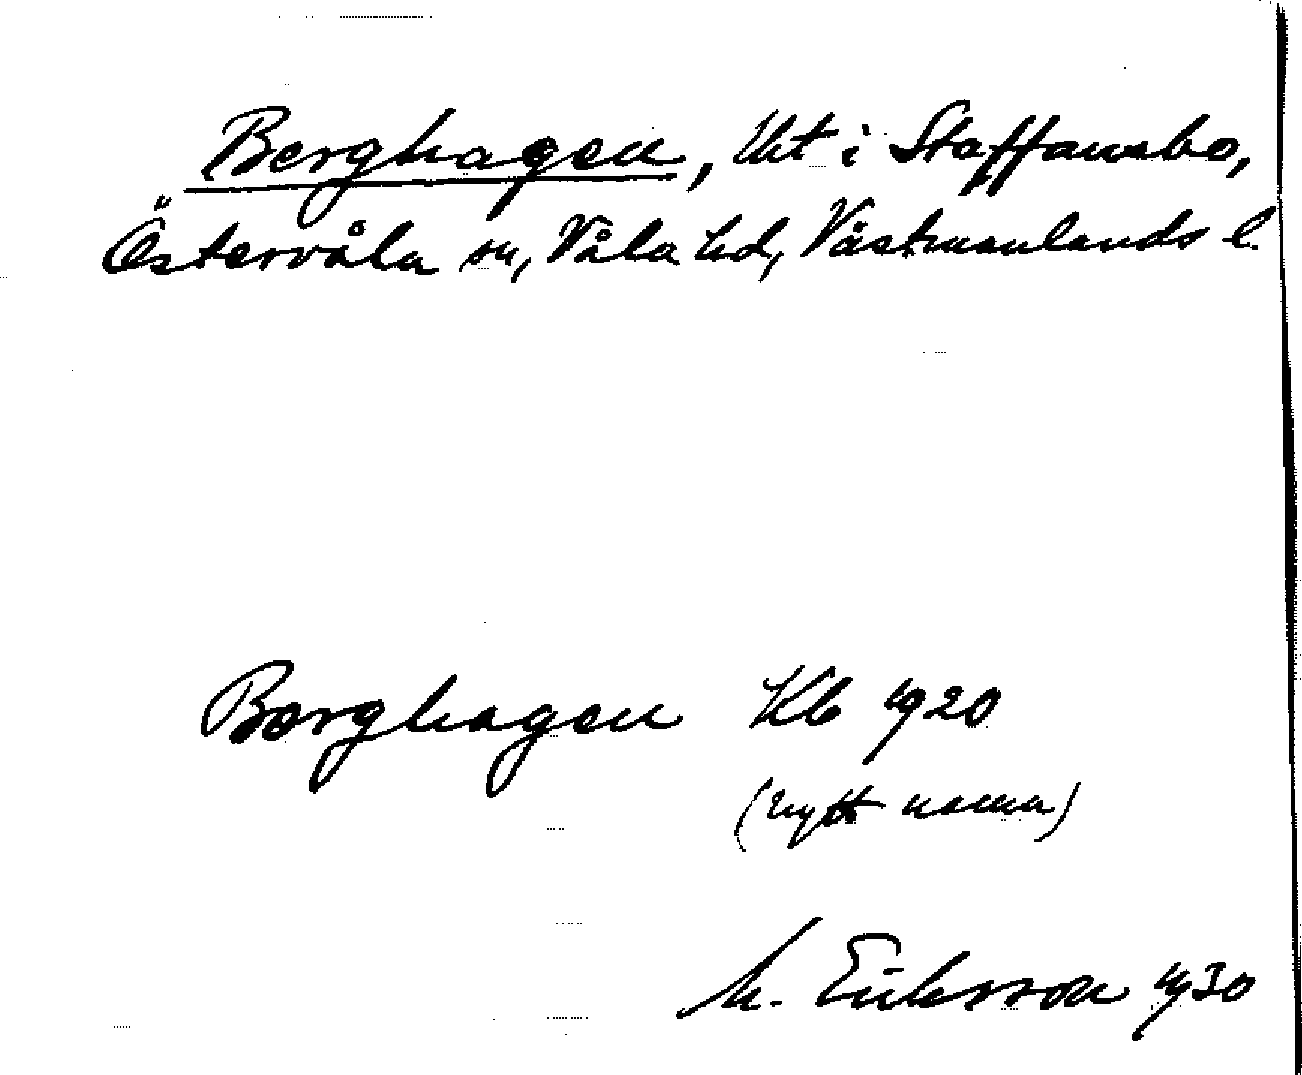 Berghagen, Uht i Staffansbo,
Östervåla sn, Våla hd, Västmanlands l.
Berghagen Kb 1920
(nytt namn)
M. Eriksson 1930